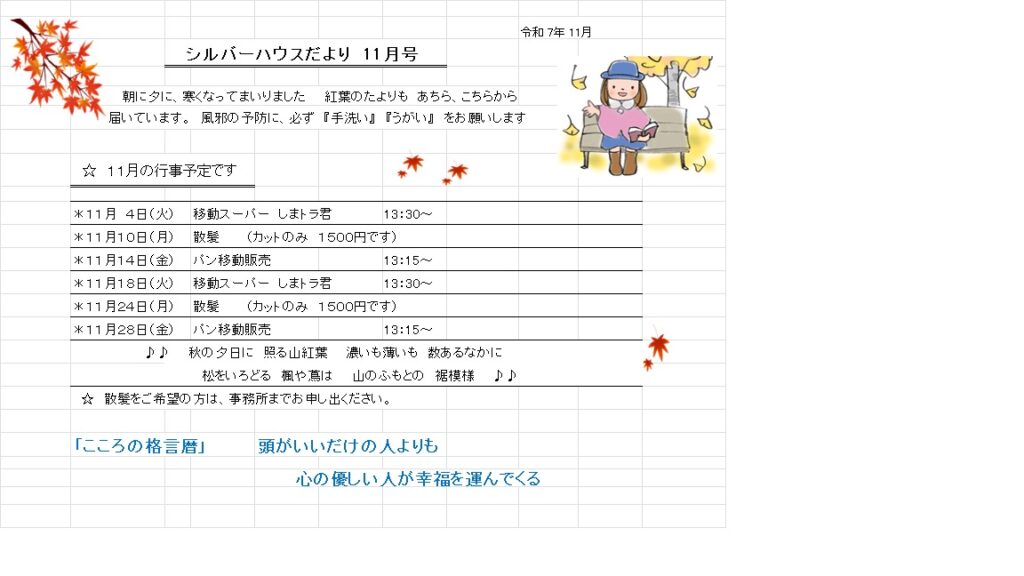 令和 7年 11月
シルバーハウスだより 11月号
朝に夕に、寒くなってまいりました　紅葉のたよりも あちら、こちらから
届いています。 風邪の予防に、必ず 『手洗い』 『うがい』 をお願いします
☆ 11月の行事予定です
＊11月 4日(火)　移動スーパー しまトラ君　13:30～
＊11月10日(月)　散髪　(カットのみ 1500円です)
＊11月14日(金)　パン移動販売　13:15～
＊11月18日(火)　移動スーパー しまトラ君　13:30～
＊11月24日(月)　散髪　(カットのみ 1500円です)
＊11月28日(金)　パン移動販売　13:15～
♪♪　秋の夕日に 照る山紅葉　濃いも薄いも 数あるなかに
松をいろどる 楓や蔦は　山のふもとの 裾模様　♪♪
☆ 散髪をご希望の方は、事務所までお申し出ください。
「こころの格言暦」　頭がいいだけの人よりも
心の優しい人が幸福を運んでくる